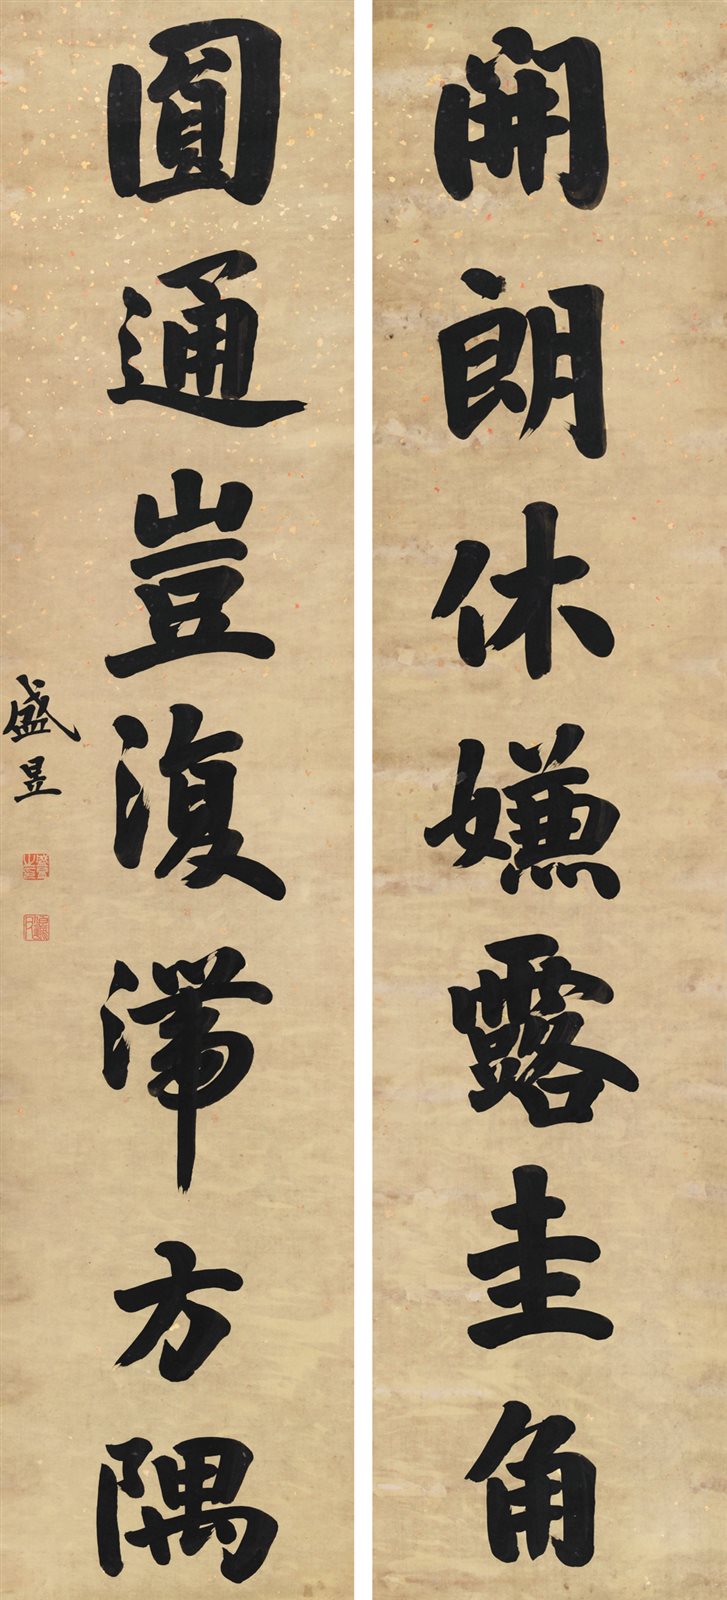 開朗休嫌露圭角
圓通豈復滯方隅
盛昱